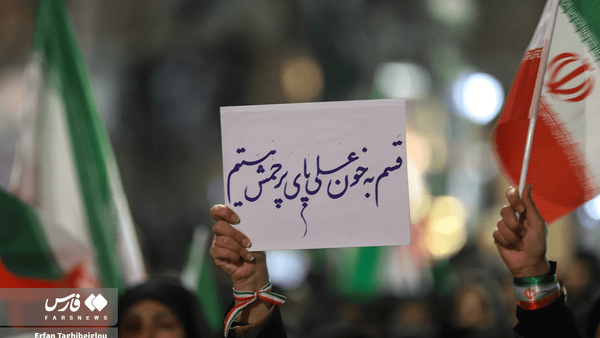 قسم به خون علی پای پرچمش هستیم
فارس
FARSNEWS
Erfan Taghibeiglou